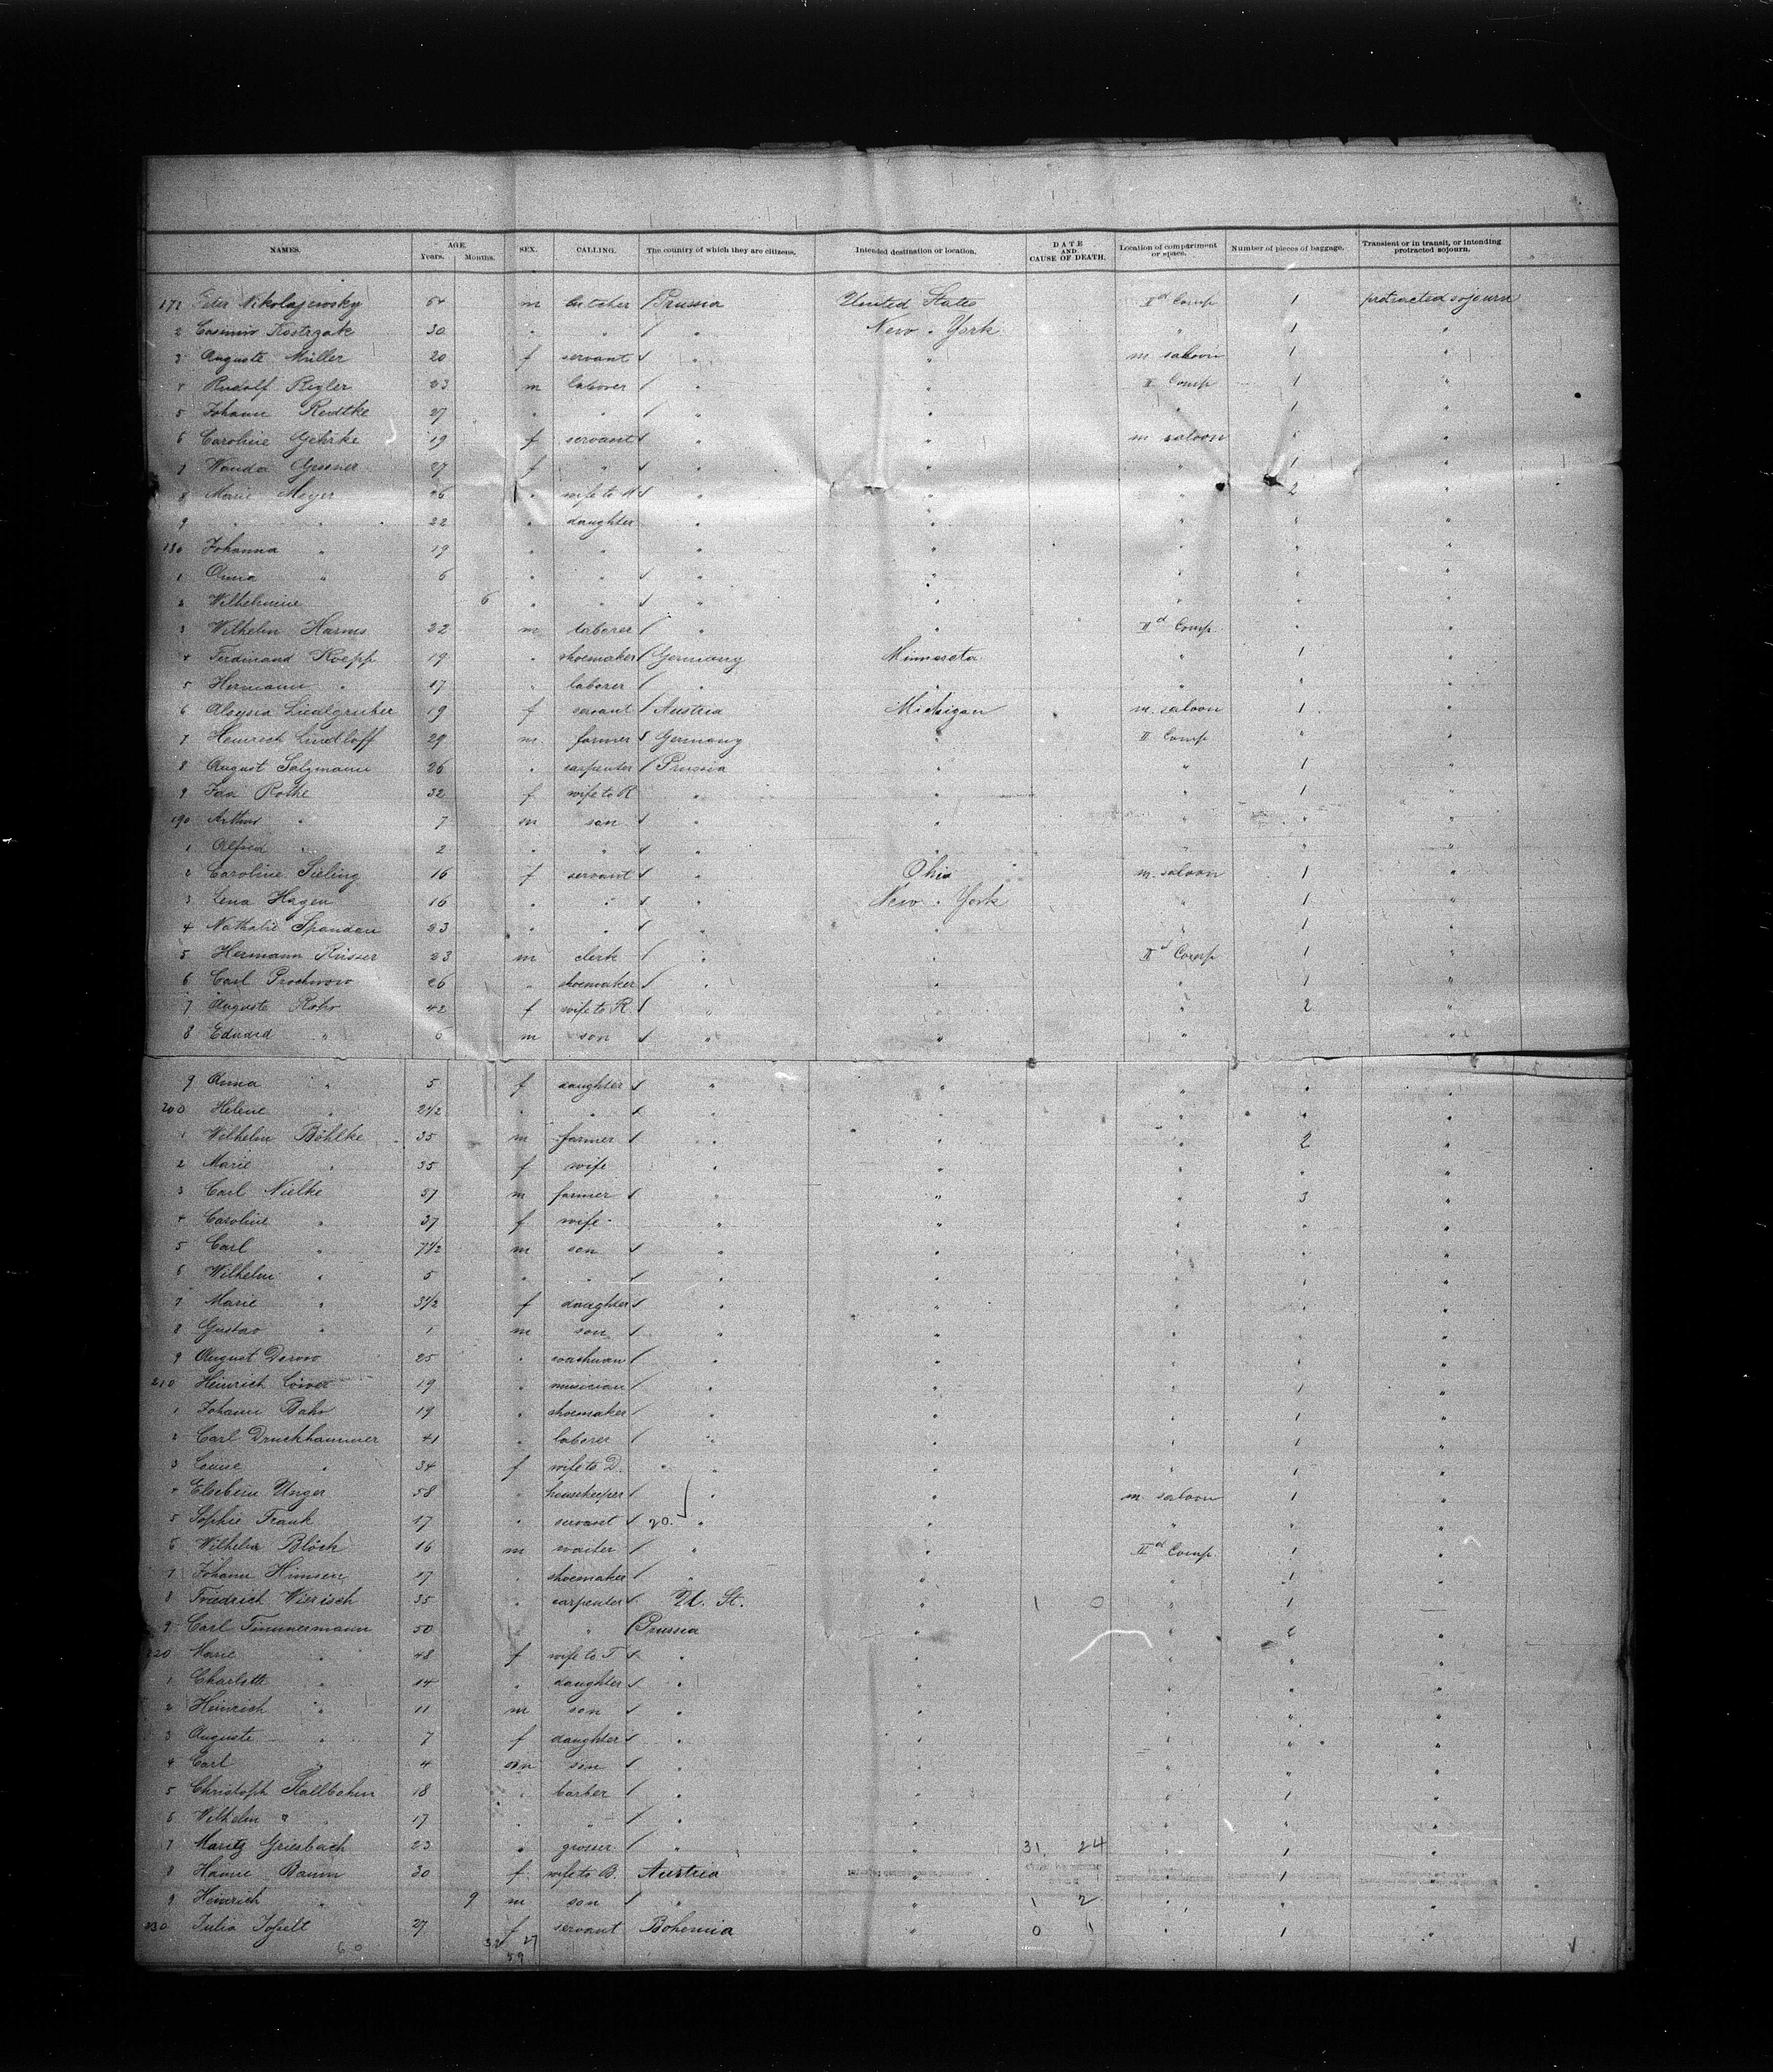 NAMES. AGE. Years. Months. SEX. CALLING. The country of which they are citizens. Intended destination or location. DATE AND CAUSE OF DEATH. Location of compartment or space. Number of pieces of baggage. Transient or in transit, or intending protracted sojourn.
171 Nikolajewsky 54 m butcher / Prussia United States IId Comp 1 protracted sojourn
2 Casimir Kostrzak 30 " " / " New - York " 1 "
3 Auguste Müller 20 f servant " " m. saloon 1 "
4 Rudolf Rigler 23 m laborer / " " II Comp 1 "
5 Johann Redtke 27 " " / " " " 1 "
6 Caroline Gehrke 19 f servant " " m saloon "
7 Wanda Gessner 27 f " " " " 1 "
8 Marie Meyer 26 " wife to M " " " 2 "
9 " " 22 " daughter " " " " "
180 Johanna " 19 " " " " " " "
1 Anna " 6 " " " " " " "
2 Wilhelmine 6 " " " " " " "
3 Wilhelm Harms 22 m laborer / " " IId Comp " "
4 Ferdinand Koepp 19 " shoemaker / Germany Minnesota " 1 "
5 Hermann " 17 " laborer / " " " " "
6 Aloysia Liedlgruber 19 f servant / Austria Michigan m. saloon 1 "
7 Heinrich Lindloff 29 m farmer Germany " II Comp " "
8 August Salzmann 26 " carpenter / Prussia " " 1 "
9 Ida Rothe 32 f wife to R " " " 1 "
190 Arthur " 7 m son " " " " "
1 Alfred " 2 " " " " " " "
2 Caroline Sieling 16 f servant " Ohio m. saloon 1 "
3 Lena Hagen 16 " " " New - York " 1 "
4 Nathalie Spandau 23 " " " " " 1 "
5 Hermann Rüsser 23 m clerk / " " IId Comp 1 "
6 Carl Prochnow 26 " shoemaker " " " 1 "
7 Auguste Rohr 42 f wife to R / " " " 2 "
8 Eduard " 6 m son " " " "
9 Anna " 5 f daughter " " " " "
200 Helene " 2 1/2 " " " " " " "
1 Wilhelm Böhlke 35 m farmer " " " 2 "
2 Marie " 35 f wife " " " " "
3 Carl Nielke 37 m farmer " " " 3 "
4 Caroline " 37 f wife " " " " "
5 Carl " 7 1/2 m son " " " " "
6 Wilhelm " 5 " " " " " " "
7 Marie " 3 1/2 f daughter " " " " "
8 Gustav " 1 m son " " " " "
9 August Derow 25 " coachman / " " " " "
210 Heinrich 19 " musician / " " " 1 "
1 Johann Bahr 19 " shoemaker / " " " 1 "
2 Carl Druckhammer 41 " laborer / " " " 1 "
3 Louise " 34 f wife to D. " " " 1 "
4 Elsebein Unger 58 " housekeeper / " " m. saloon 1 "
5 Sophie Frank 17 " servant 20. " " " " "
6 Wilhelm Blöch 16 m waiter / " " IId Comp. 1 "
7 Johann Hinsen 17 " shoemaker / " " " 1 "
8 Friedrich Wierisch 35 " carpenter U. St. " 1 0 " 1 —
9 Carl Timmermann 50 " " Prussia " " "
220 Marie " 48 f wife to T " " " " "
1 Charlotte " 14 " daughter " " " " "
2 Heinrich " 11 m son " " " " "
3 Auguste " 7 f daughter " " " " "
4 Carl " 4 m son " " " " "
5 Christoph Kallbohm 18 " barber / " " " 1 "
6 Wilhelm " 17 " " / " " " " "
7 Moritz Griesbach 23 " grosser / " " 31 24 " 1 "
8 Hanne Baum 30 f wife to B. Austria " " 1 "
9 Heinrich " 9 m son / " " 1 2 " " "
230 Julia 27 f servant Bohemia " 0 1 " 1 "
60 32 27
59